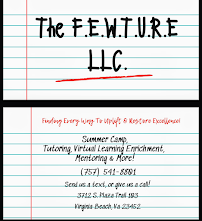 The F.E.W.T.U.R.E
LLC.
Finding Every Way To Uplift & Restore Excellence!
Summer Camp,
Tutoring, Virtual Learning Enrichment,
Mentoring & More!
(757) 541-8801
Send us a text, or give us a call!
3712 S. Plaza Trail 103
Virginia Beach, Va 23452